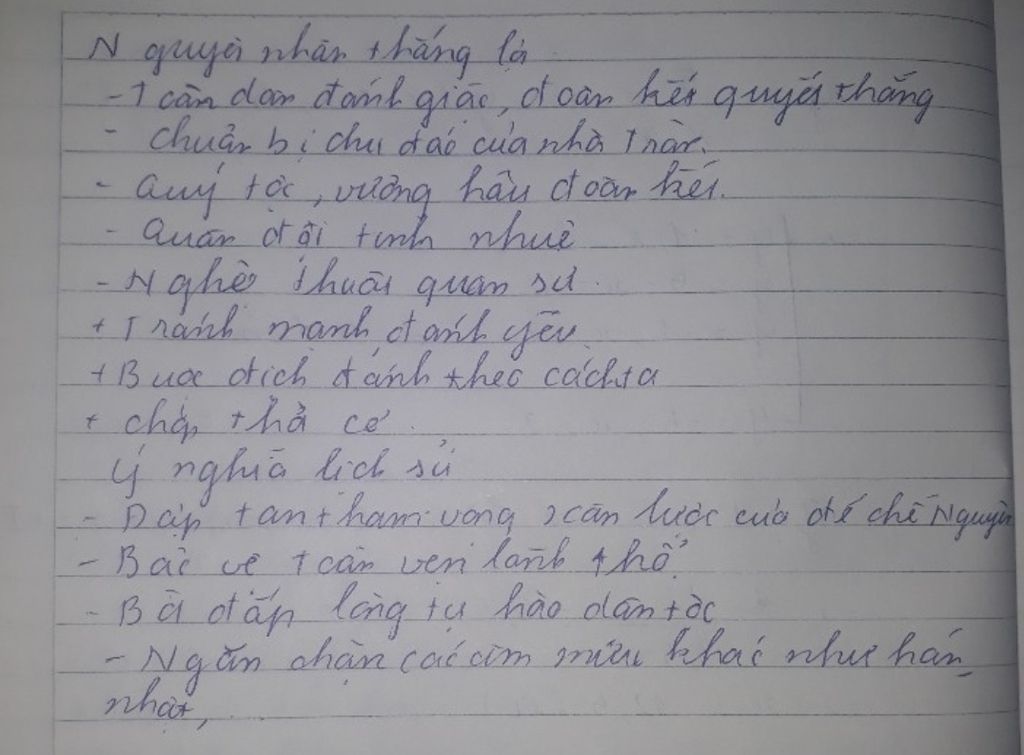 Nguyên nhân thắng là
- Toàn dân đánh giặc, đoàn kết quyết thắng
- chuẩn bị chu đáo của nhà Trần.
- Quý tộc, vương hầu đoàn kết.
- Quân đội tinh nhuệ
- Nghệ thuật quân sự.
+ Tránh mạnh đánh yếu
+ Buộc địch đánh theo cách ta
+ chớp thời cơ.
Ý nghĩa lịch sử
- Đập tan tham vọng xâm lược của đế chế Nguyên
- Bảo vệ toàn vẹn lãnh thổ.
- Bồi đắp lòng tự hào dân tộc
- Ngăn chặn các âm mưu khác như hán,
nhật,